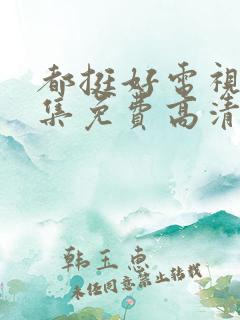 都挺好電視
集免費高清
韩玉惠
未经同意禁止转载